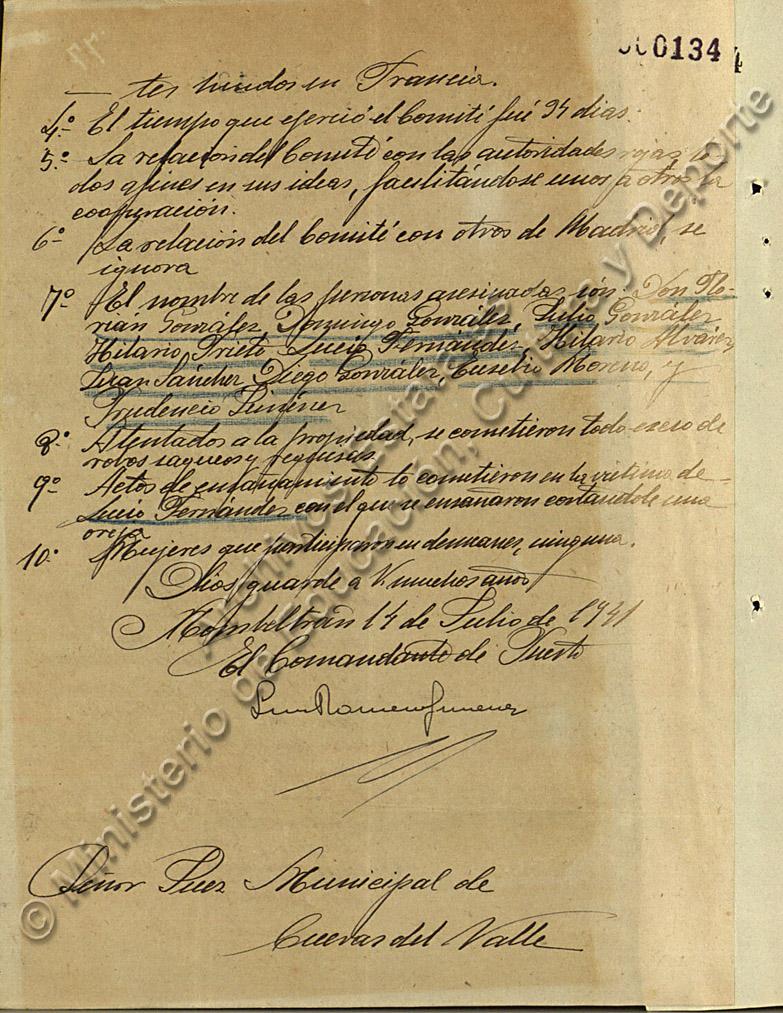 000134
— tes huidos en Francia.
4.º El tiempo que ejerció el Comité fué 94 dias.
5.º La relación del Comité con las autoridades rojas, to
dos afines en sus ideas, facilitándose unos a otros la
cooperación.
6º La relación del Comité con otros de Madrid, se
ignora
7º El nombre de las personas asesinadas, son: Don Flo-
rián González, Domingo González, Julio González
Hilario Prieto Lucio Fernández, Hilario Alvárez,
Juan Sánchez Diego González, Eusebio Moreno, y
Prudencio Jiménez
8.º Atentados a la propiedad, se cometieron todo exceso de
robos saqueos y requisas.
9º Actos de ensañamiento lo cometieron en la víctima de-
Lucio Fernández con el que se ensañaron cortandole una
oreja
10.º Mujeres que participaron en desmanes, ninguna.
Dios guarde a V muchos años
Mombeltrán 14 de Julio de 1941
El Comandante de Puesto
Luis Romero Jimenez
Señor Juez Municipal de
Cuevas del Valle
© Ministerio de Educación, Cultura y Deporte
Archivos Estatales